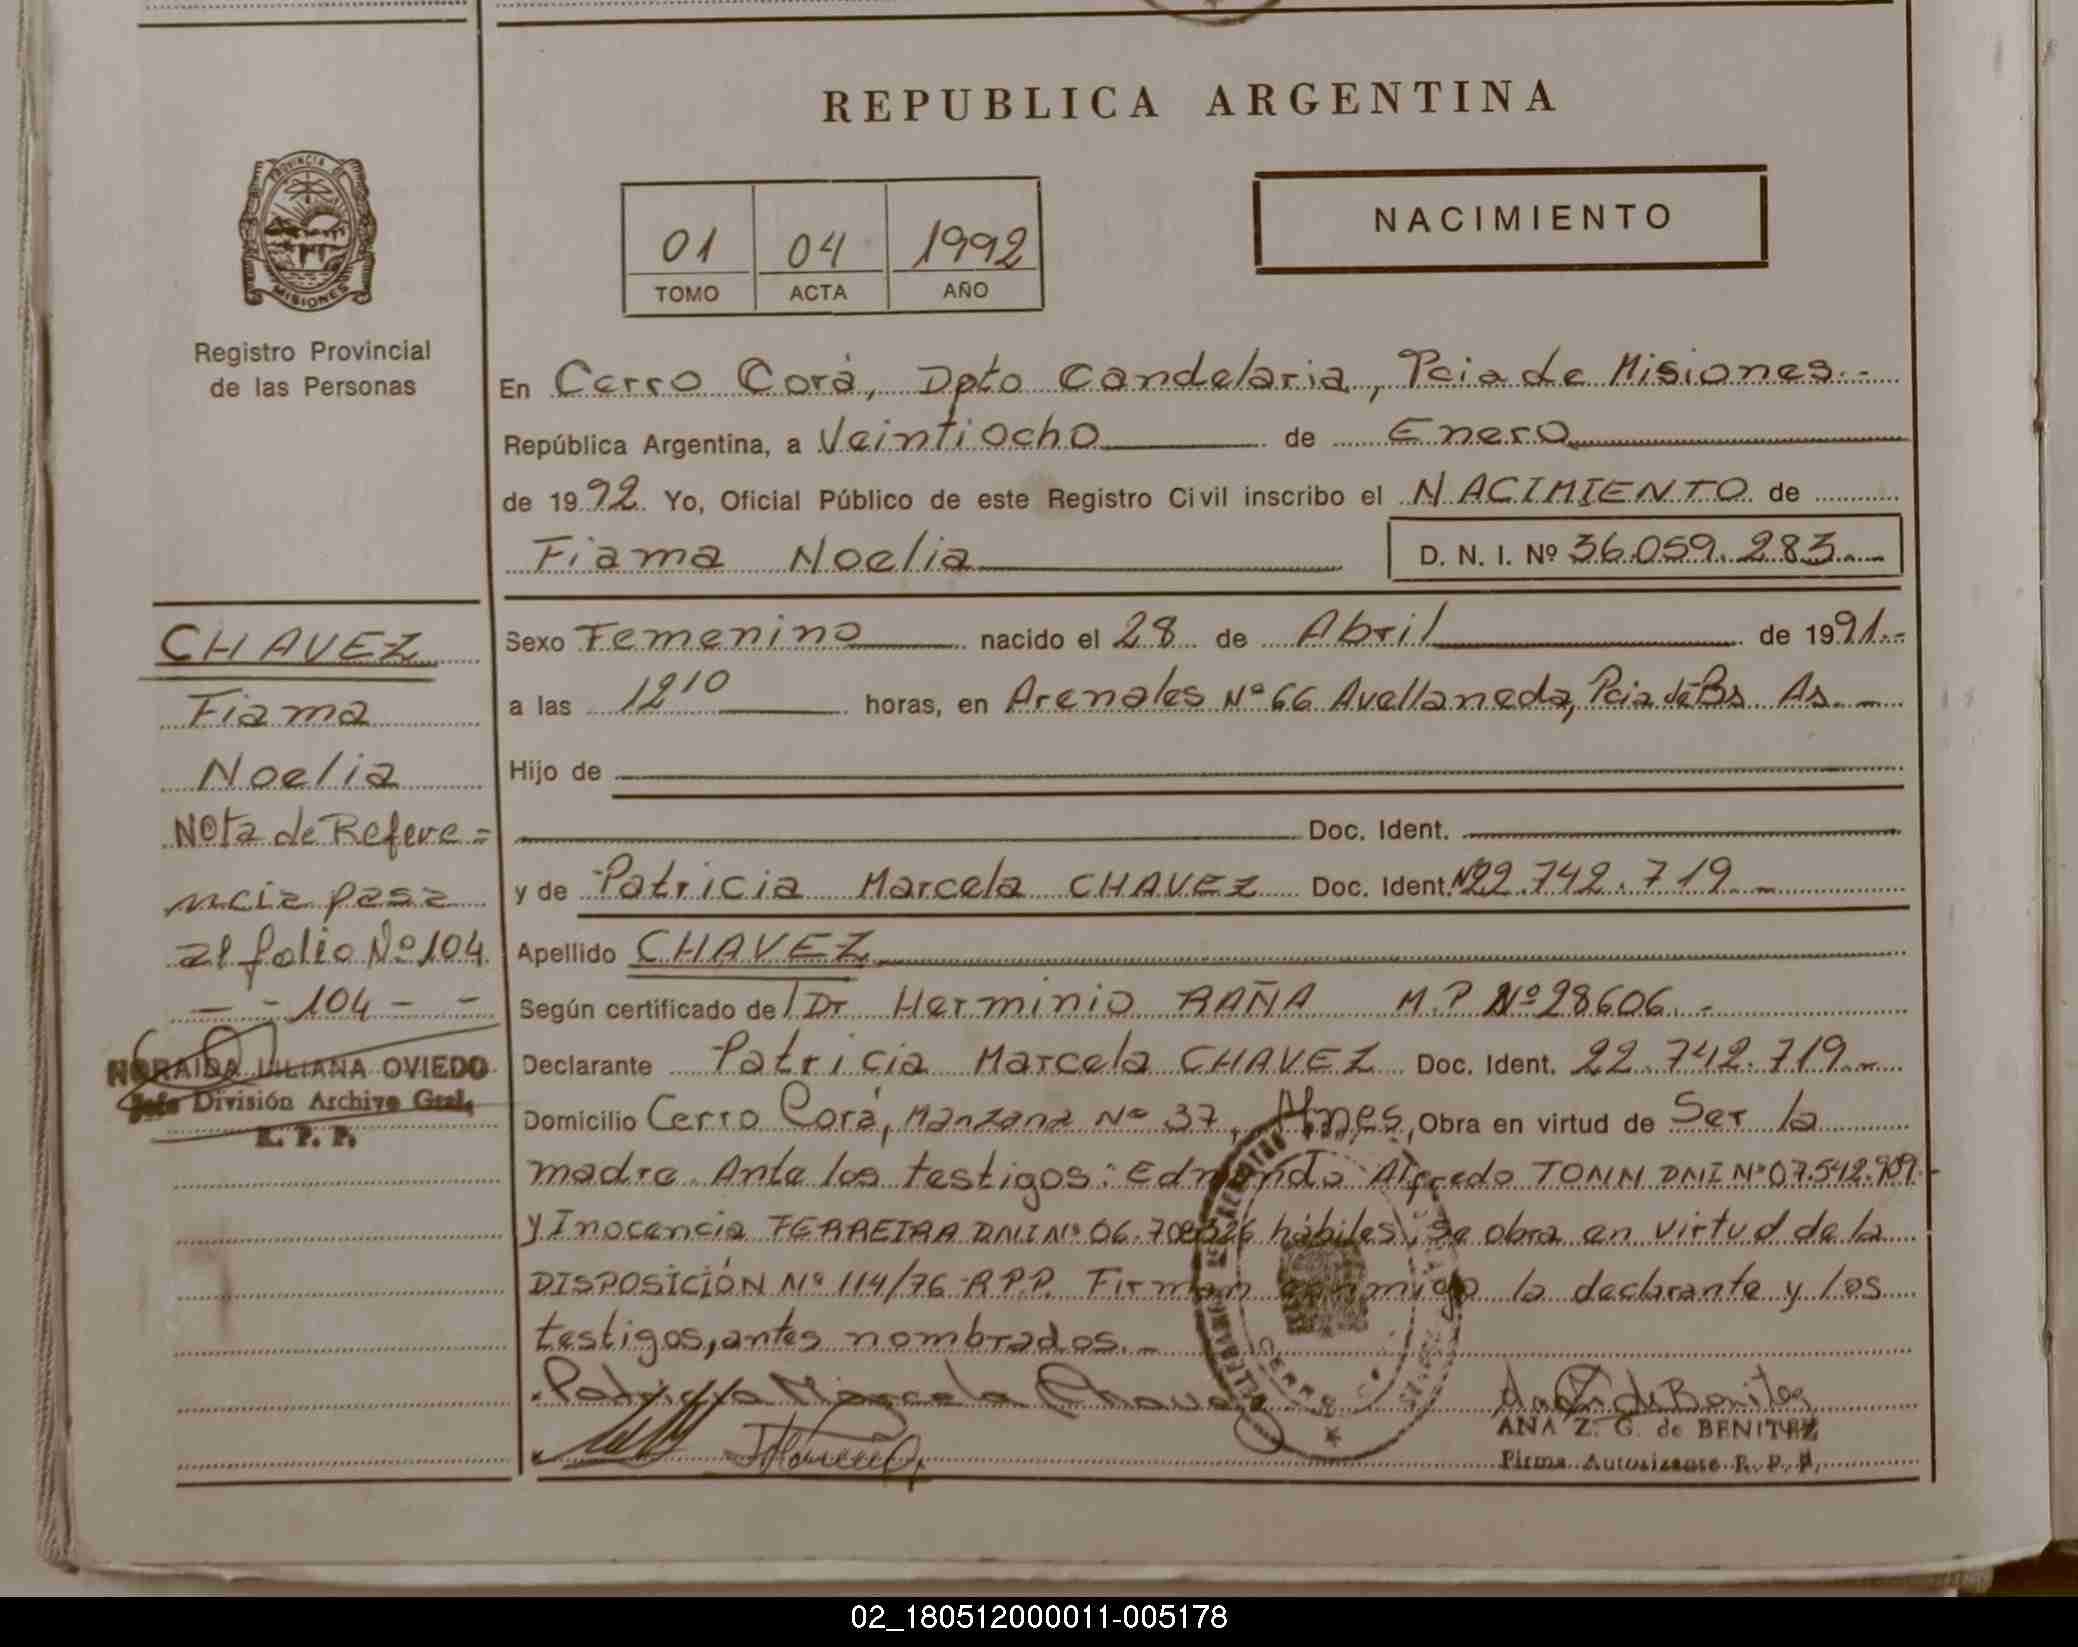 REPUBLICA ARGENTINA
NACIMIENTO
01 04 1992
TOMO ACTA AÑO
PROVINCIA DE
MISIONES
Registro Provincial
de las Personas
En Cerro Corá, Dpto Candelaria, Pcia de Misiones.-
República Argentina, a Veintiocho de Enero
de 1992. Yo, Oficial Público de este Registro Civil inscribo el NACIMIENTO de
Fiama Noelia D. N. I. Nº 36.059.283.
CHAVEZ
Fiama
Noelia
Nota de Refere=
ncia pasa
al folio Nº 104
- - 104 - -
NORAIDA LILIANA OVIEDO
Jefe División Archivo Gral.
R. P. P.
Sexo Femenino nacido el 28 de Abril de 1991.-
a las 12 10 horas, en Arenales Nº 66 Avellaneda, Pcia de Bs. As. -
Hijo de
Doc. Ident.
y de Patricia Marcela CHAVEZ Doc. Ident. Nº 22.742.719.-
Apellido CHAVEZ
Según certificado del Dr Herminio RAÑA M.P Nº 28606.-
Declarante Patricia Marcela CHAVEZ Doc. Ident. 22.742.719.-
Domicilio Cerro Corá, Manzana Nº 37, Mnes, Obra en virtud de Ser la
madre. Ante los testigos: Edmundo Alfredo TONN DNI Nº 07.542.909.-
y Inocencia FERREIRA DNI Nº 06.708.326 hábiles, se obra en virtud de la
DISPOSICIÓN Nº 114/76 R.P.P. Firman conmigo la declarante y los
testigos, antes nombrados.-
Patricia Marcela Chavez
Ana Z G de Benitez
ANA Z. G. de BENITEZ
Firma Autorizante R. P. P.
CERRO
02_180512000011-005178